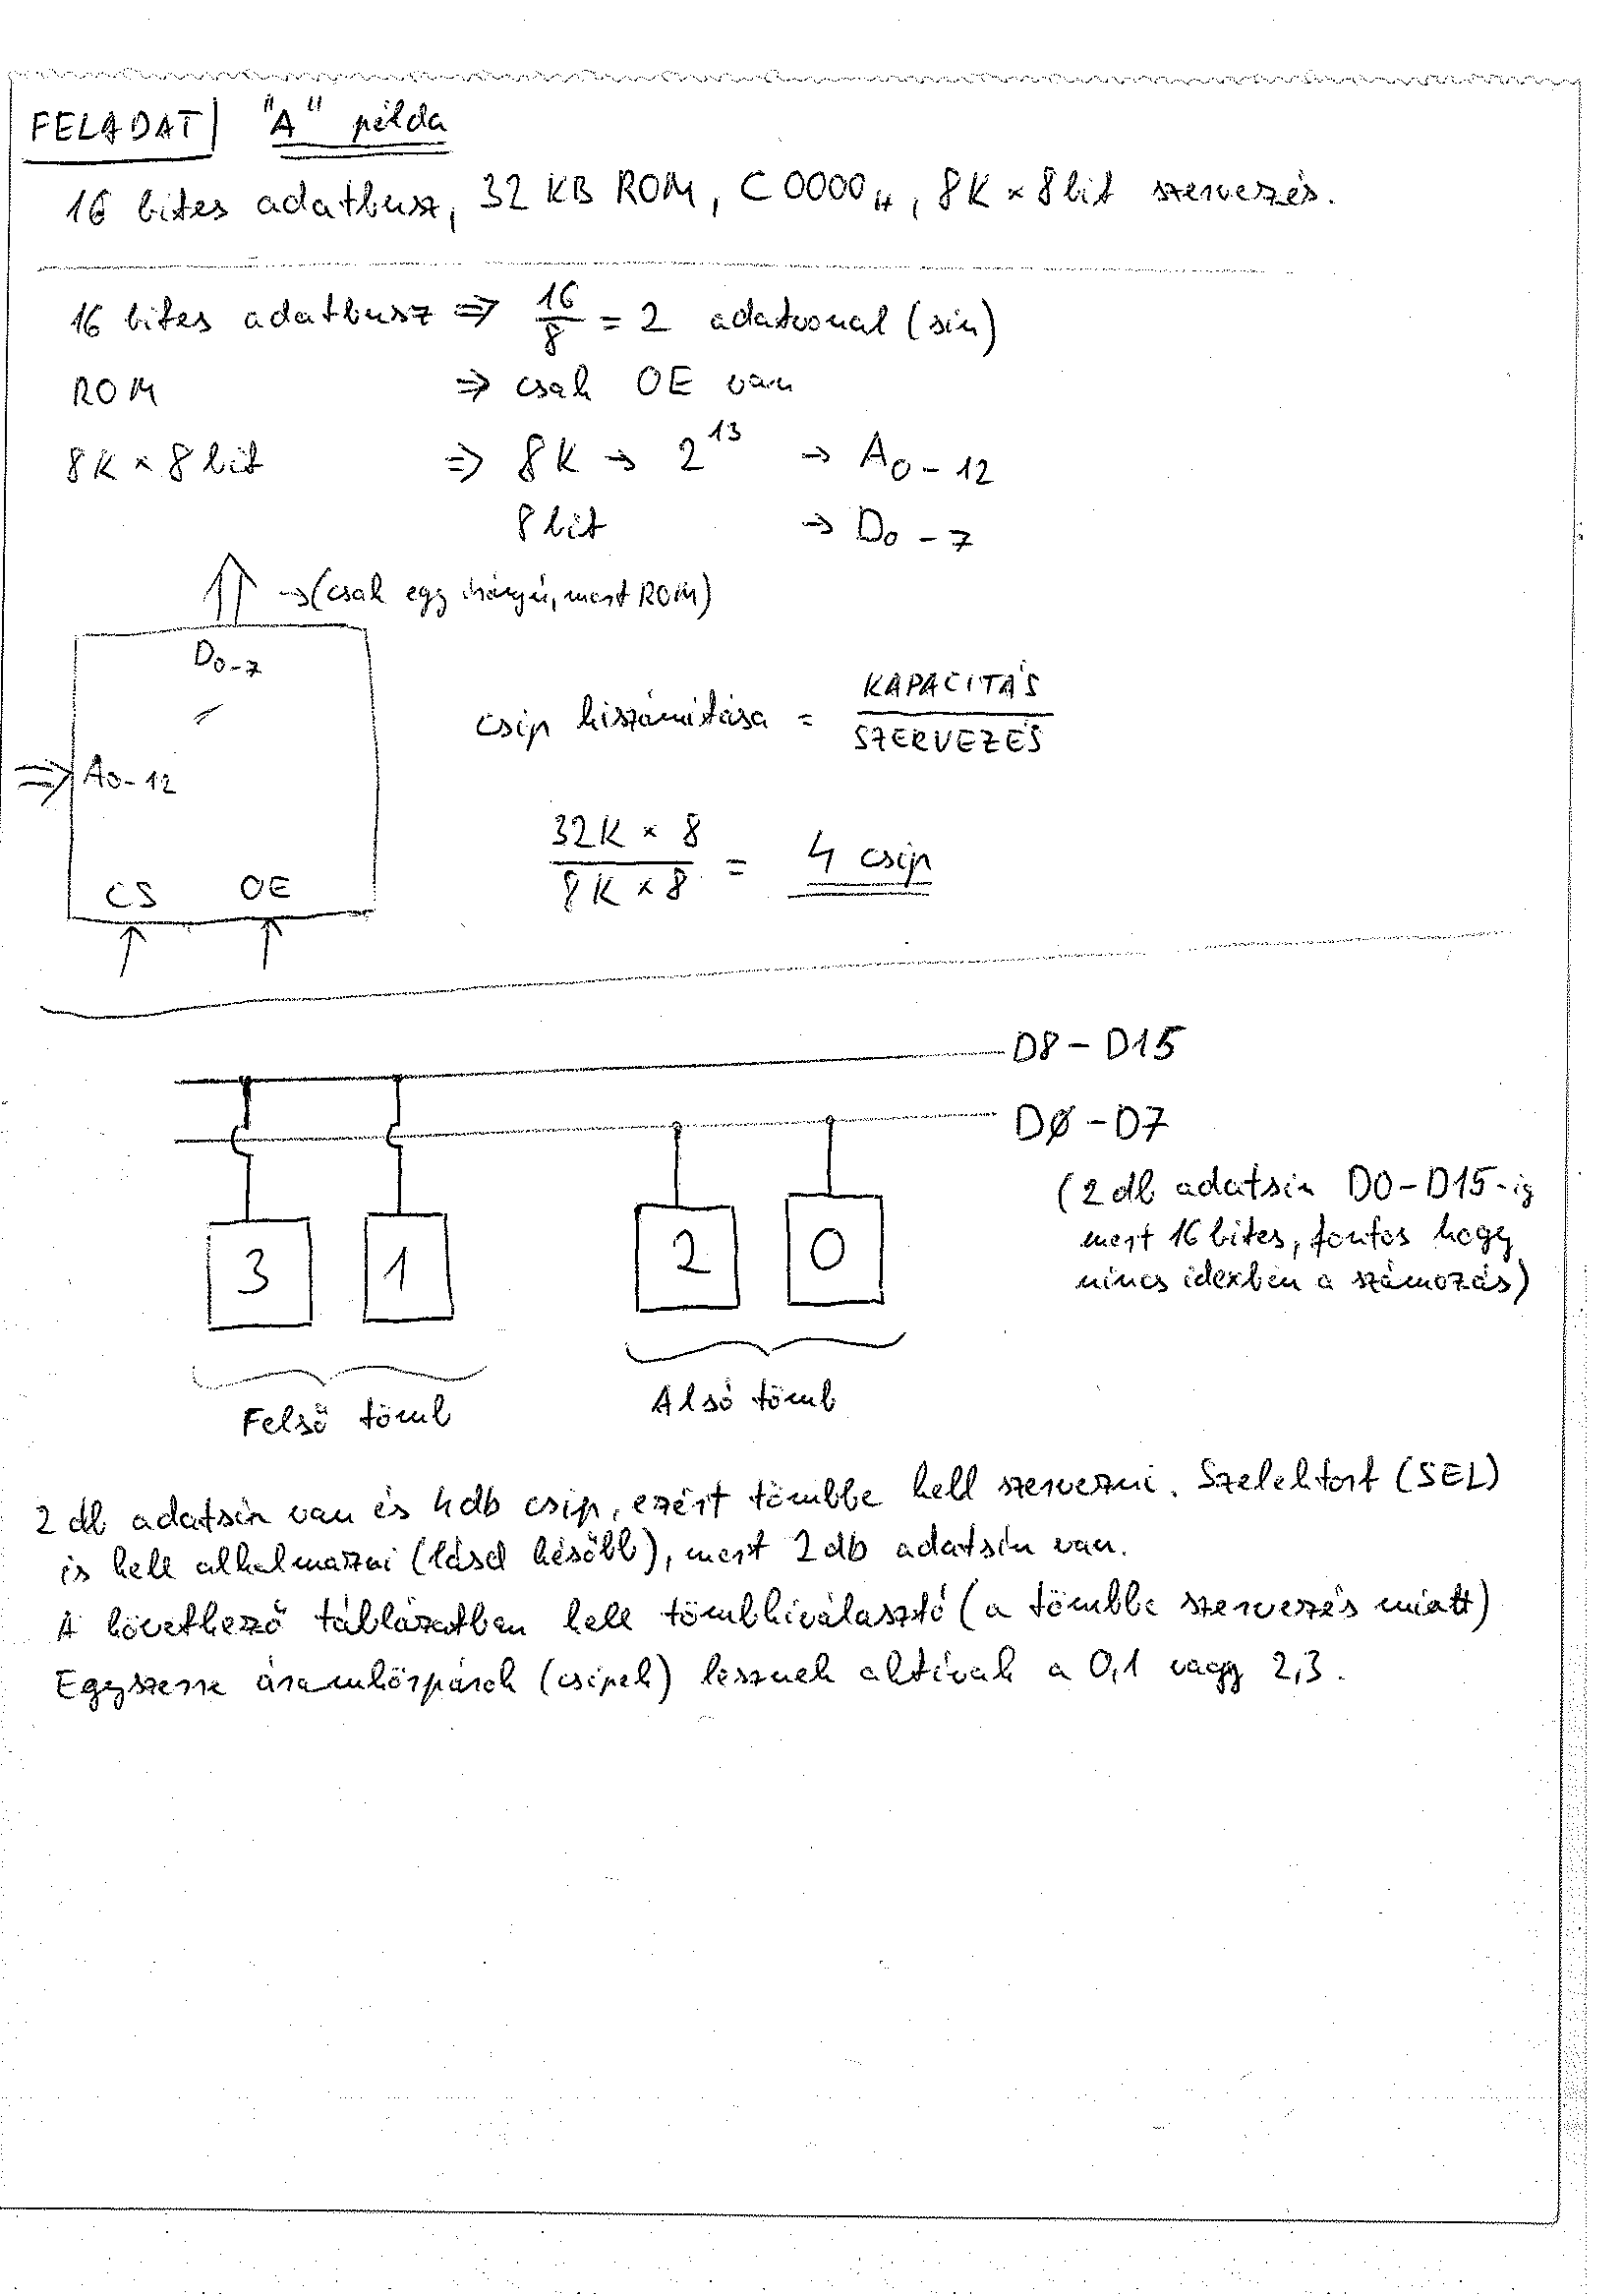 FELADAT "A" példa
16 bites adatbusz, 32 KB ROM, C0000H, 8K × 8bit szervezés.
16 bites adatbusz ⇒ 16/8 = 2 adatvonal (sín)
ROM ⇒ csak OE van
8K × 8 bit ⇒ 8K → 2^13 → A0-12
8 bit → D0-7
→ (csak egy irányú, mert ROM)
D0-7
csip kiszámítása = KAPACITÁS / SZERVEZÉS
⇒ A0-12
32K × 8 / 8K × 8 = 4 csip
CS OE
D8-D15
DØ-D7
(2 db adatsín D0-D15-ig
mert 16 bites, fontos hogy
nincs idexben a számozás)
3 1 2 0
Felső tömb Alsó tömb
2 db adatsín van és 4db csip, ezért tömbbe kell szervezni. Szelektort (SEL)
is kell alkalmazni (lásd később), mert 2db adatsín van.
A következő táblázatban kell tömbkiválasztó (a tömbbe szervezés miatt)
Egyszerre áramkörpárok (csipek) lesznek aktívak a 0,1 vagy 2,3.